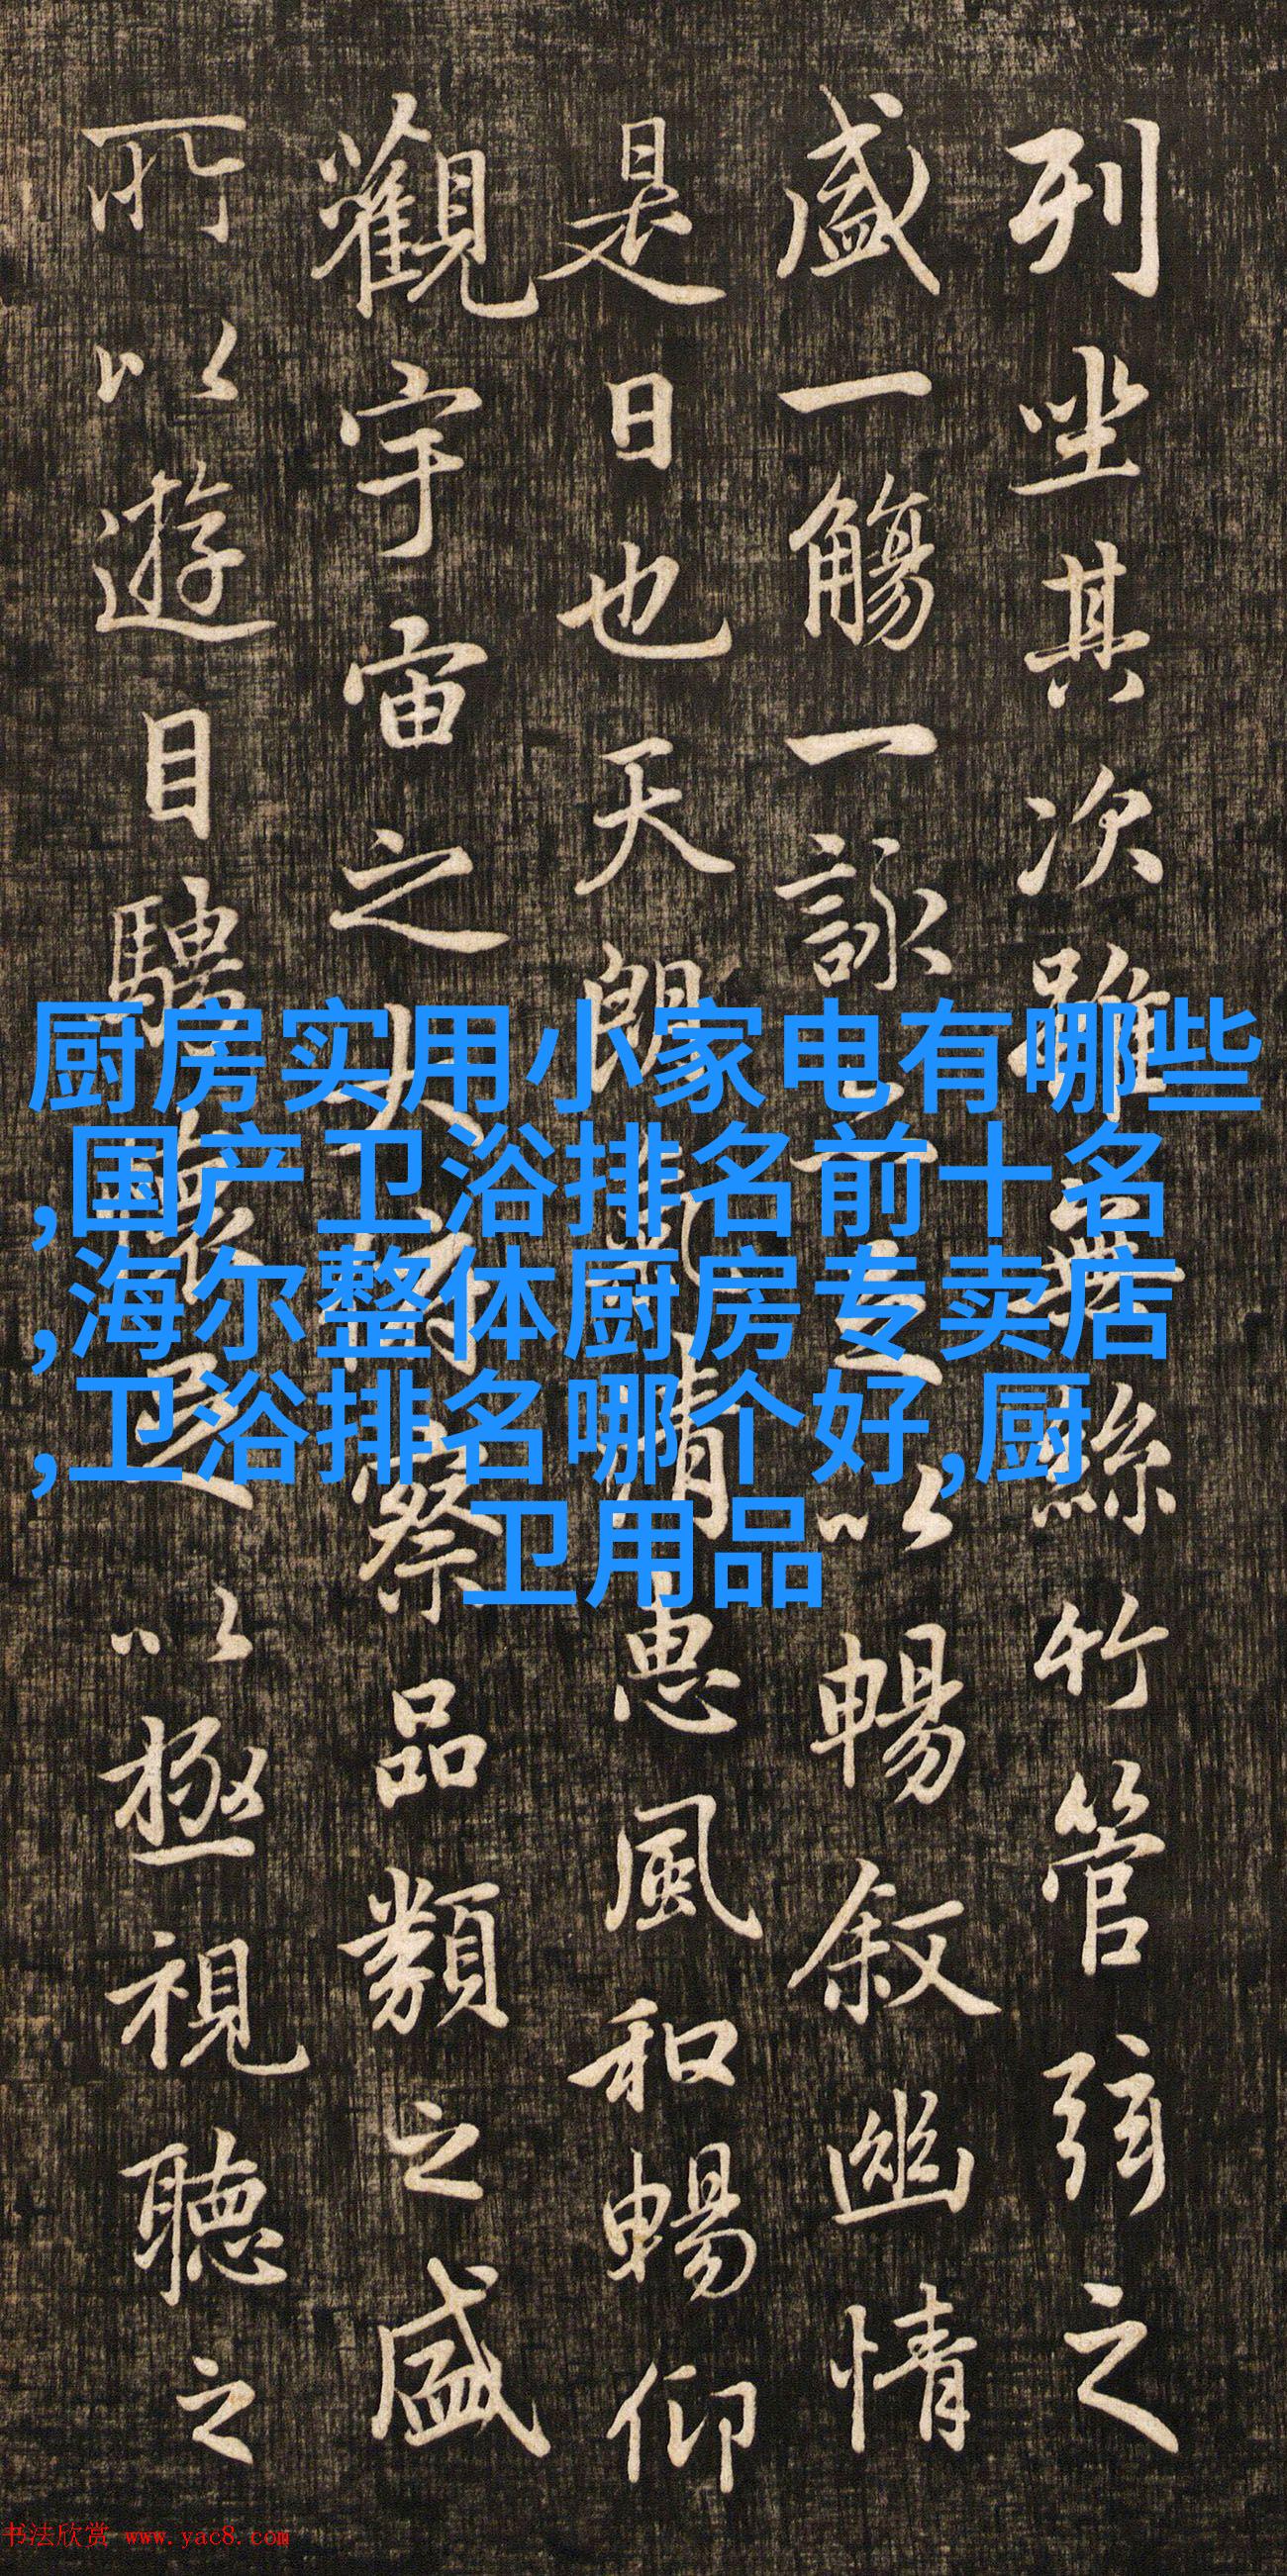 列坐其次雖無絲竹管弦之
盛一觴一詠亦足以暢叙幽情
是日也天朗氣清惠風和暢仰
觀宇宙之大俯察品類之盛
所以遊目騁懷足以極視聽之
厨房实用小家电有哪些
,国产卫浴排名前十名
,海尔整体厨房专卖店
,卫浴排名哪个好,厨
卫用品
书法欣赏 www.yac8.com